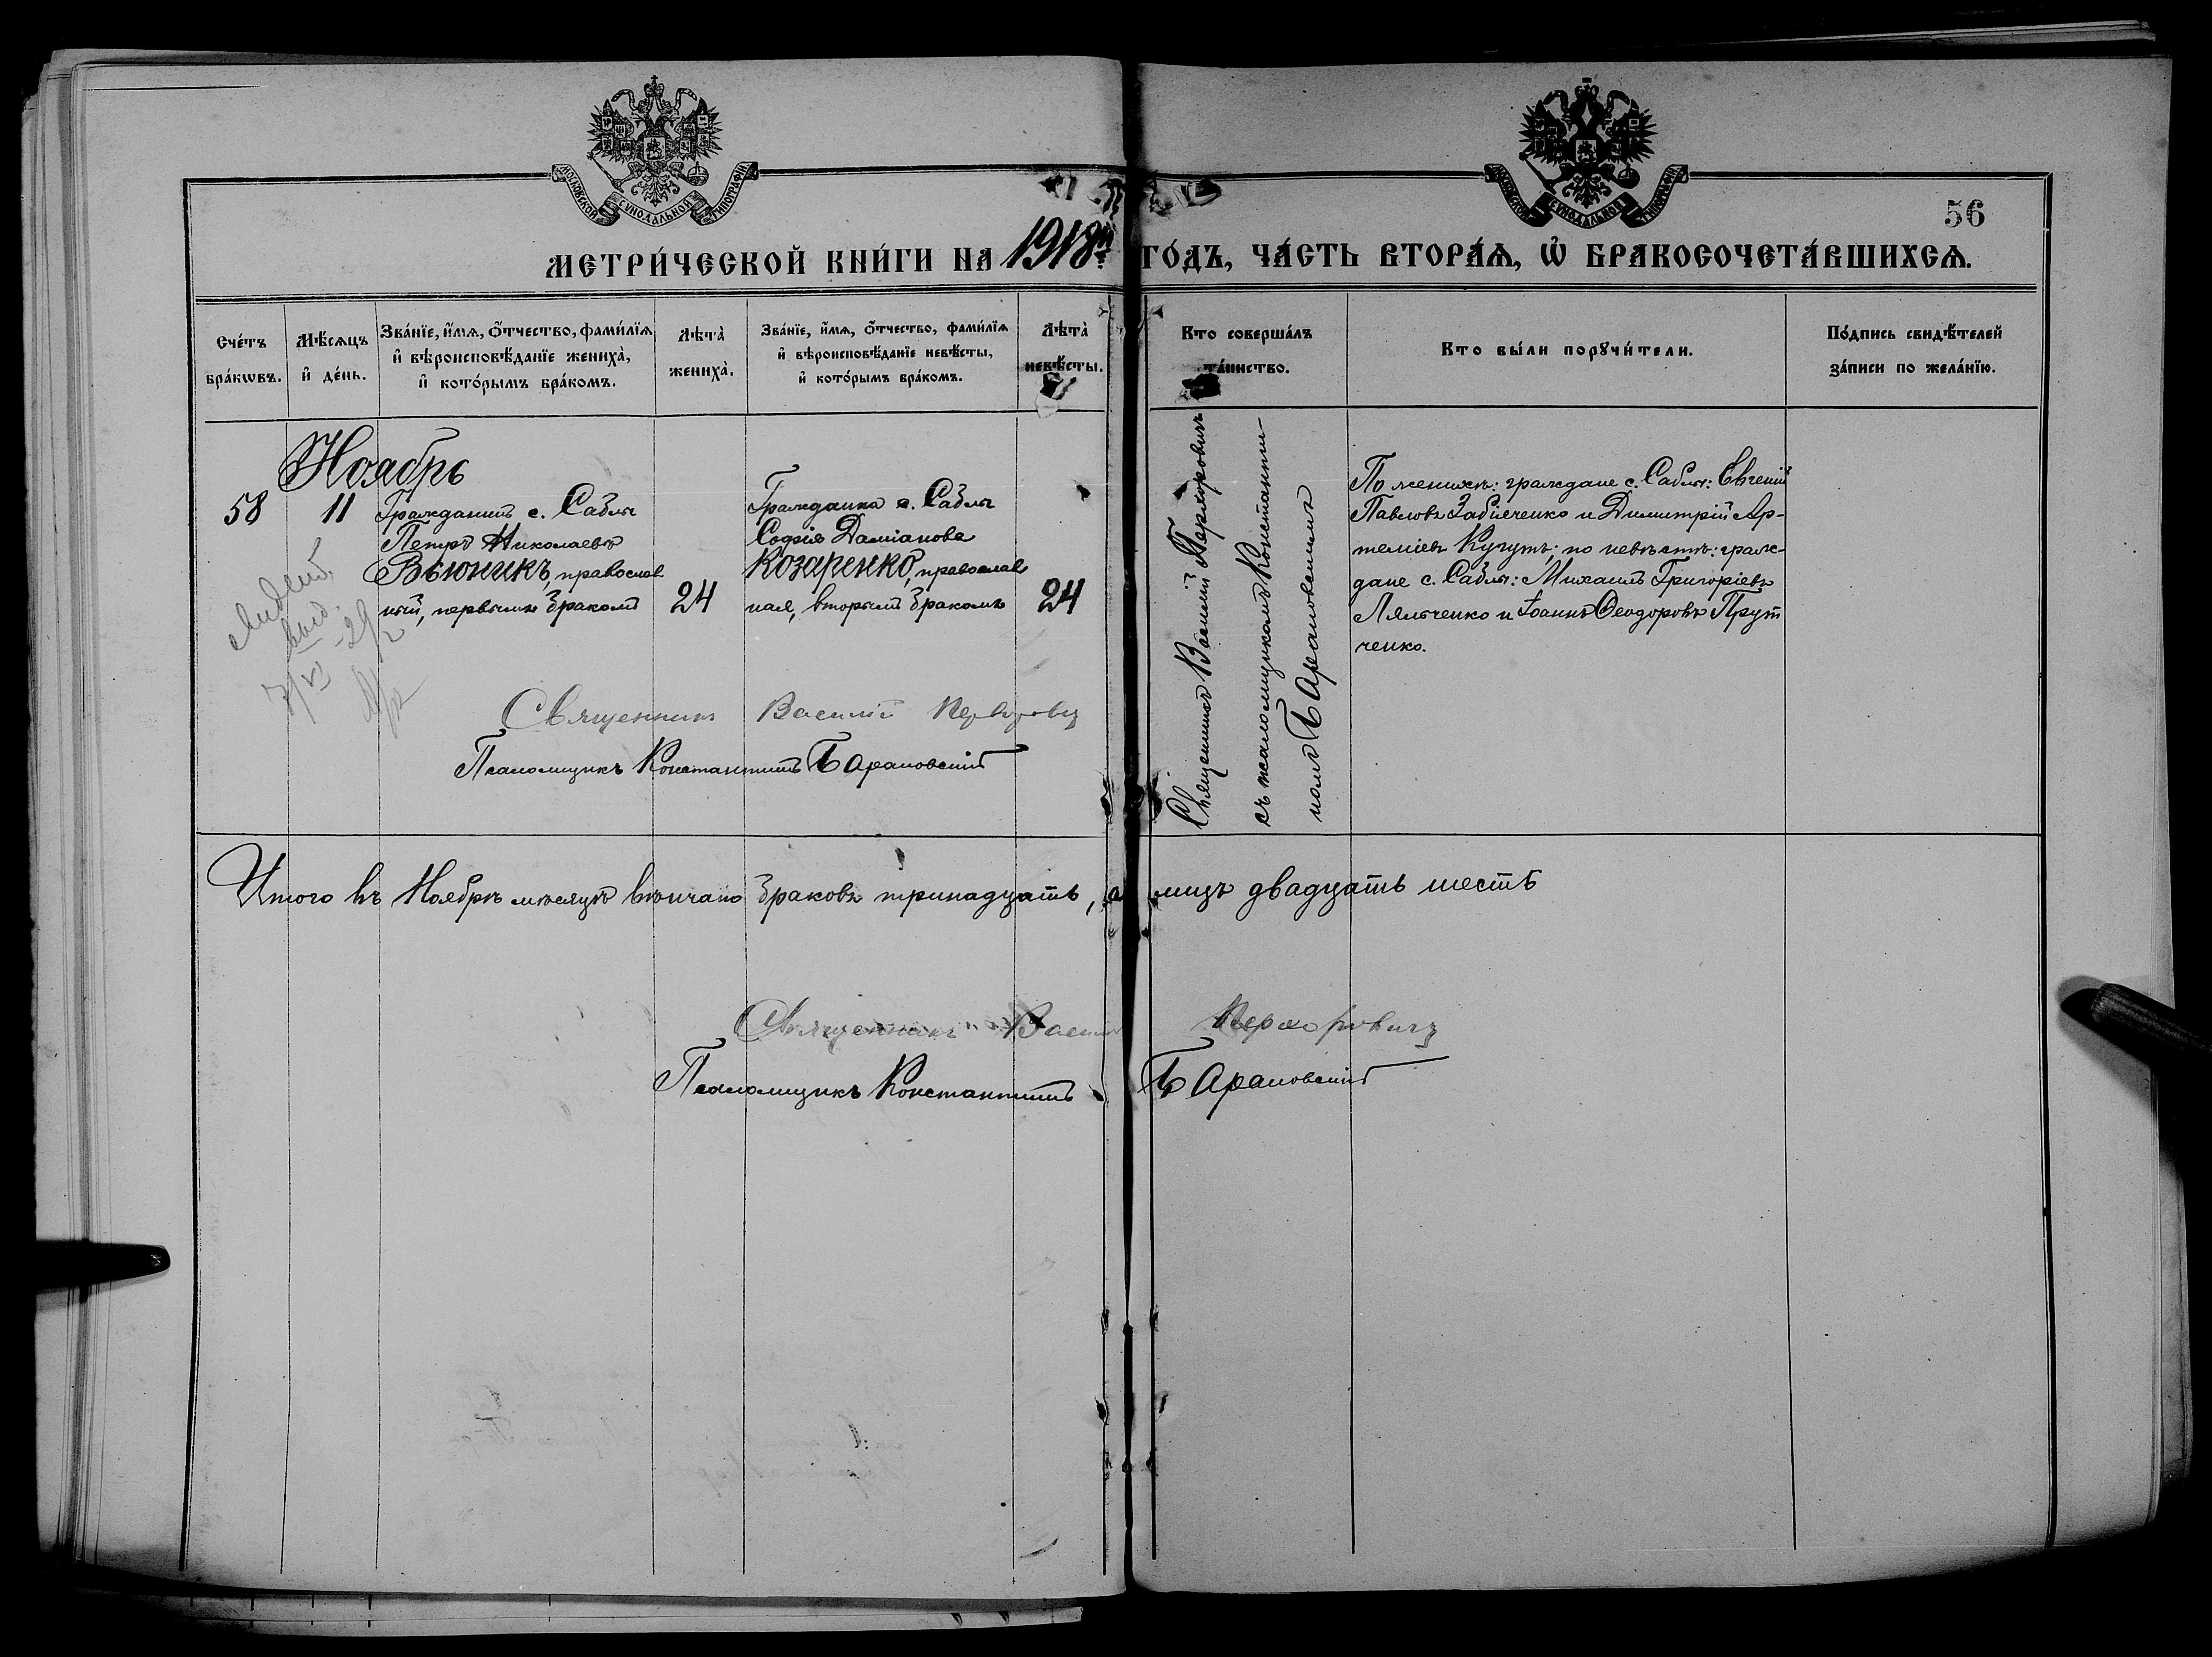 МОСКОВСКОЙ СѴНОДАЛЬНОЙ ТИПОГРАФІИ
МОСКОВСКОЙ СѴНОДАЛЬНОЙ ТИПОГРАФІИ
56
МЕТРИ́ЧЕСКОЙ КНИ́ГИ НА 1918й ГО́ДЪ, ЧА́СТЬ ВТОРА́Ѧ, Ѡ҆ БРАКОСОЧЕТА́ВШИХСѦ.
Сче́тъ бра́кѡвъ.
Мѣ́сѧцъ и҆ де́нь.
Зва́нїе, и҆́мѧ, ѻ҆́тчество, фами́лїѧ
и҆ вѣроисповѣ́данїе жениха̀,
и҆ кото́рымъ бра́комъ.
Лѣта̀ жениха̀.
Зва́нїе, и҆́мѧ, ѻ҆́тчество, фами́лїѧ
и҆ вѣроисповѣ́данїе невѣ́сты,
и҆ кото́рымъ бра́комъ.
Лѣта̀ невѣ́сты.
Кто соверша́лъ
та́инство.
Кто бы́ли порꙋчи́тели.
По́дпись свидѣ́телей
за́писи по жела́нїю.
Ноябрь
58
11
Гражданинъ с. Саблы
Петръ Николаевъ
Вьюникъ, православ
ный, первымъ бракомъ
24
Гражданка с. Саблы
Софія Даміанова
Козаренко, православ
ная, вторымъ бракомъ
24
Священникъ Василій
съ псаломщикомъ Константи-
номъ Барановскимъ
По женихѣ: граждане с. Саблы: Евгений
Павловъ Забіяченко и Димитрій Ар-
теміевъ Кугутъ; по невѣстѣ: граж-
дане с. Саблы: Михаилъ Григоріевъ
Ляльченко и Іоаннъ Ѳеодоровъ Прут
ченко.
Священникъ Василій
Псаломщикъ Константинъ Барановскій
Итого въ Ноябрѣ мѣсяцѣ вѣнчано браковъ тринадцать, а лицъ двадцать шесть
Священникъ Василій
Псаломщикъ Константинъ Барановскій